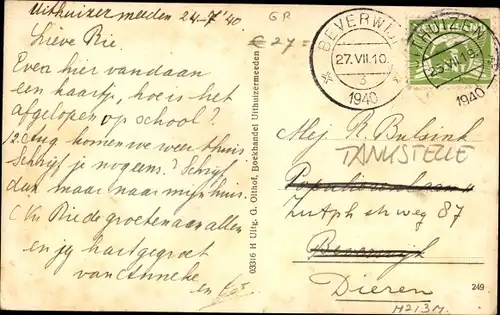 Uithuizermeeden 24-7'40
Lieve Rie.
Even hier vandaan
een kaartje, hoe is het
afgelopen op school?
12 Aug komen we weer thuis.
Schrijf je nog eens? Schrijf
dan maar naar mijn huis.
Rie de groeten aan allen
en jij hartgegroet
van Anneke
en
GR
€ 27=
03316 H Uitg. G. Olthof, Boekhandel Uithuizermeeden
BEVERWIJK
27.VII.10.
3
1940
UITHUIZEN
25.VII.19
1940
Mej. R. Bulsink
TANKSTELLE
Populierenlaan
Zutphenseweg 87
Beverwijk
Dieren
249
M213M.